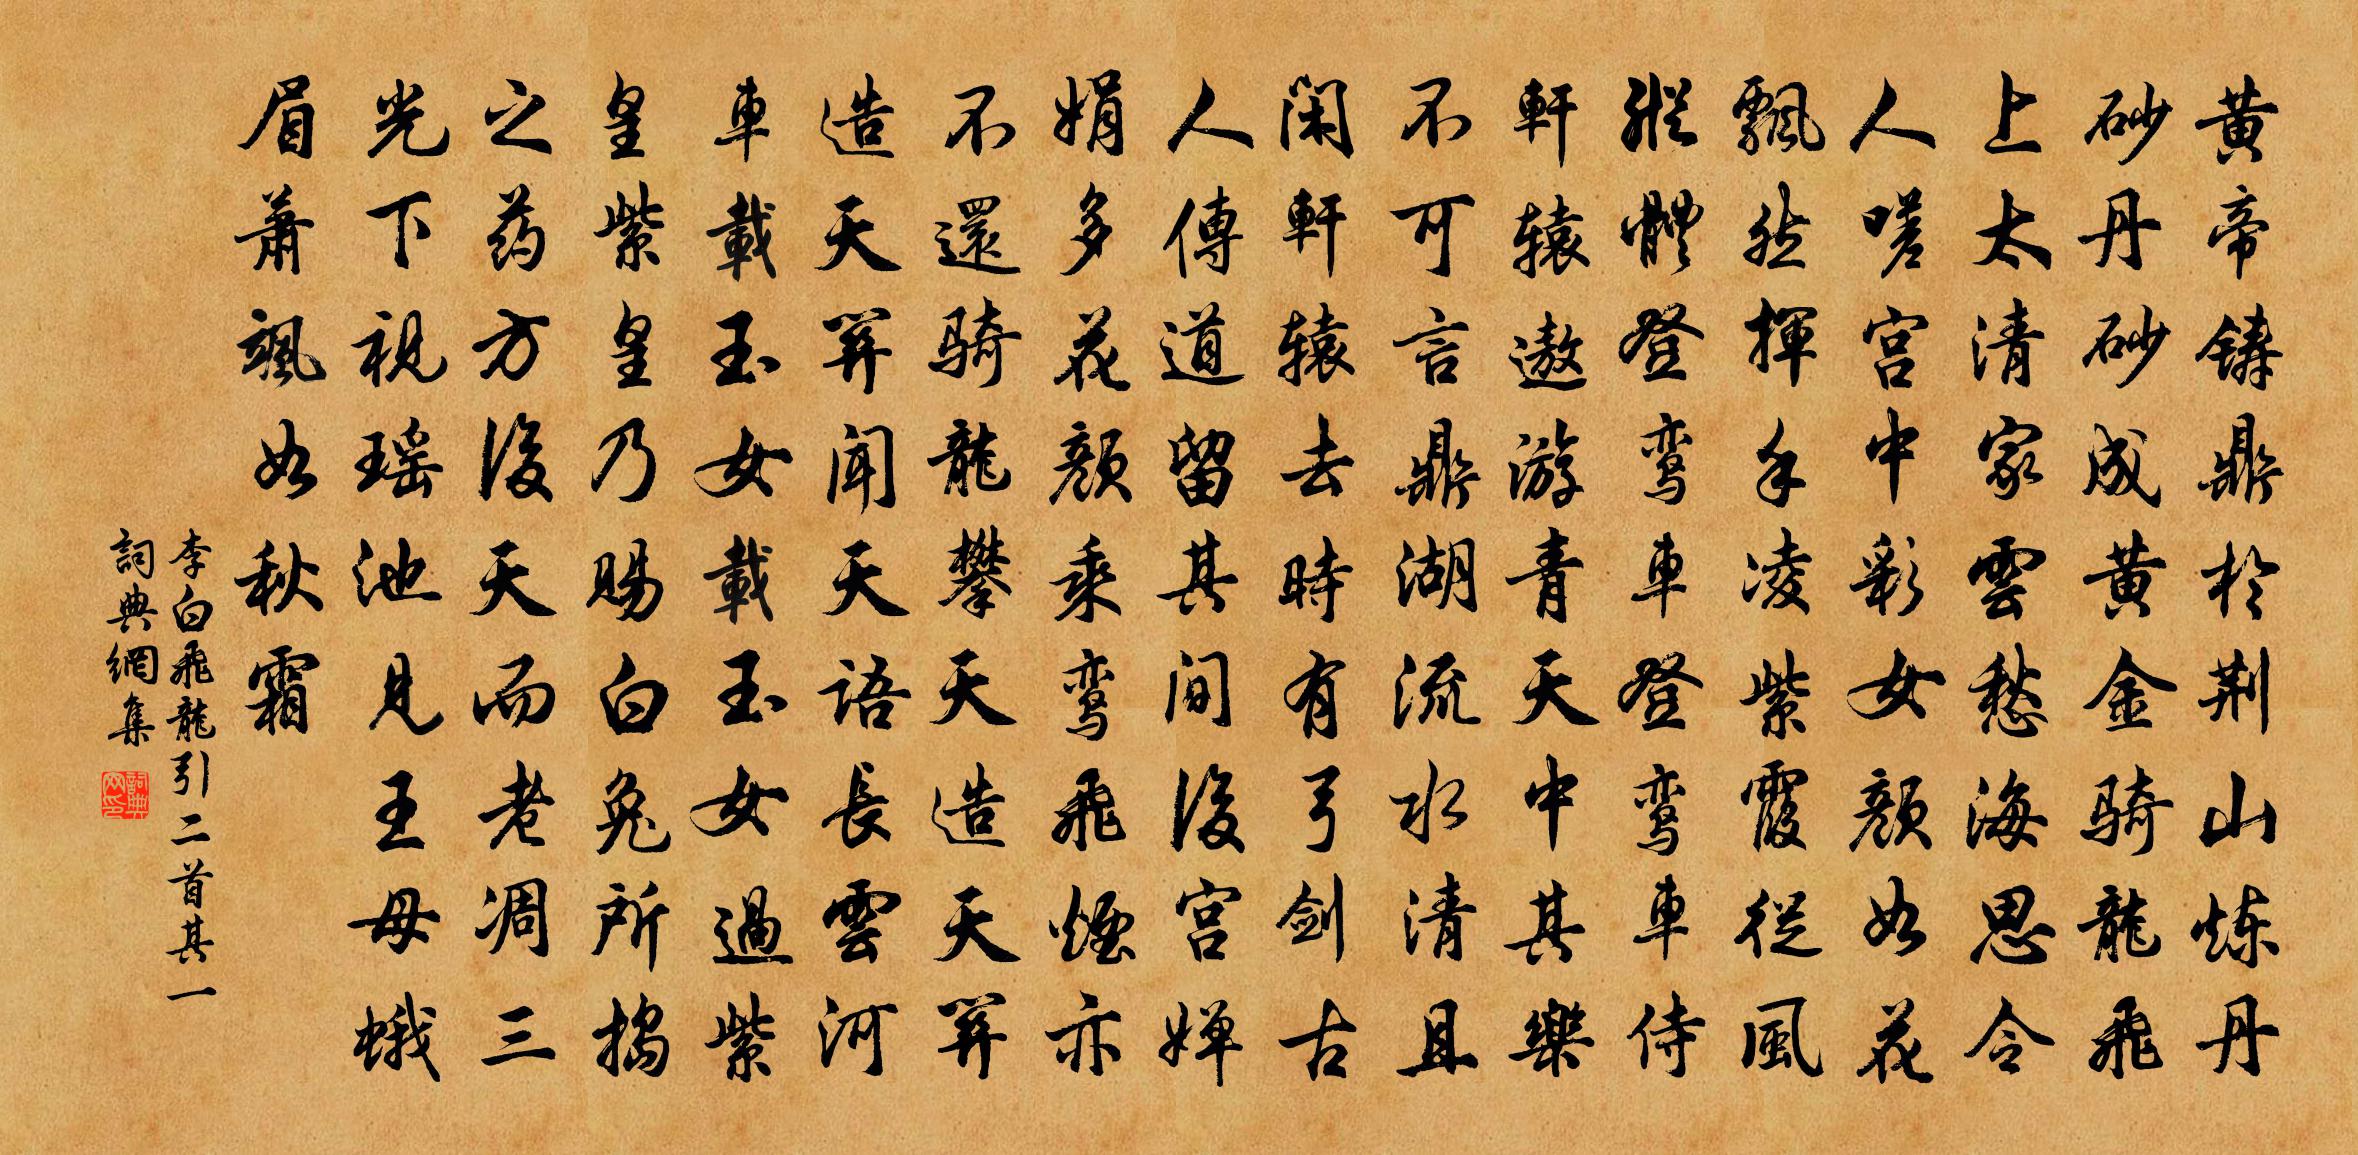 黄帝鑄鼎於荆山炼丹
砂丹砂成黄金骑龍飛
上太清家雲愁海思令
人嗟宫中彩女颜如花
飄然揮手凌紫霞從風
縱體登鸾車登鸾車侍
軒辕遨游青天中其樂
不可言鼎湖流水清且
闲軒辕去時有弓剑古
人傳道留其間後宫嬋
娟多花颜乘鸾飛煙亦
不還骑龍攀天造天關
造天關聞天語長雲河
車載玉女載玉女過紫
皇紫皇乃赐白兔所搗
之药方後天而老凋三
光下視瑶池見王母蛾
眉蕭颯如秋霜
李白飛龍引二首其一
詞典網集
詞典网印